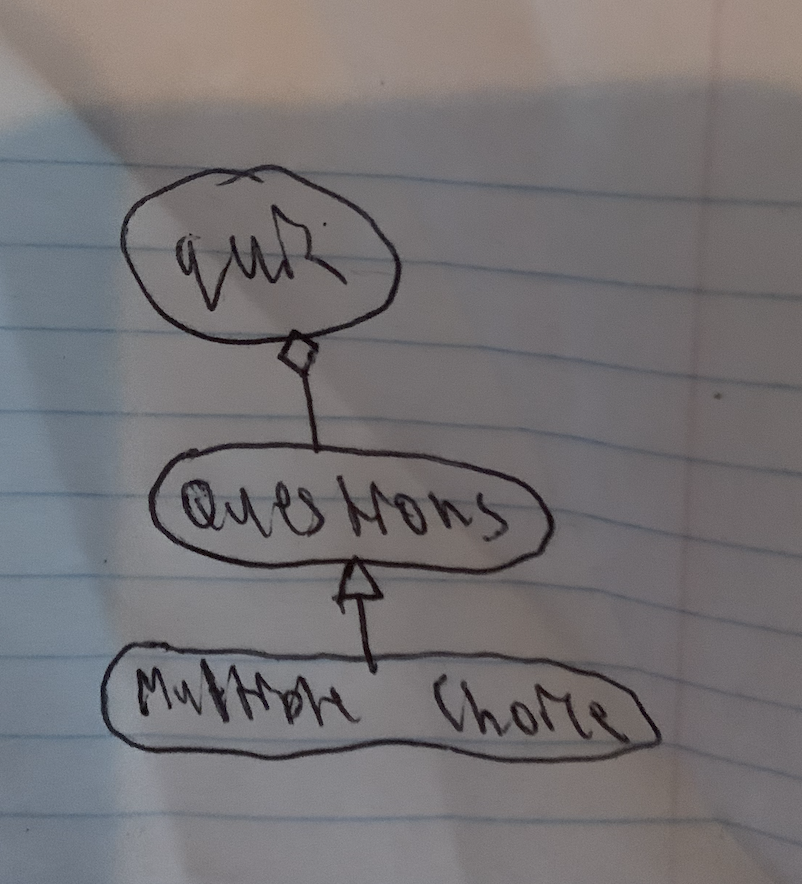 quiz
Questions
Multiple Choice